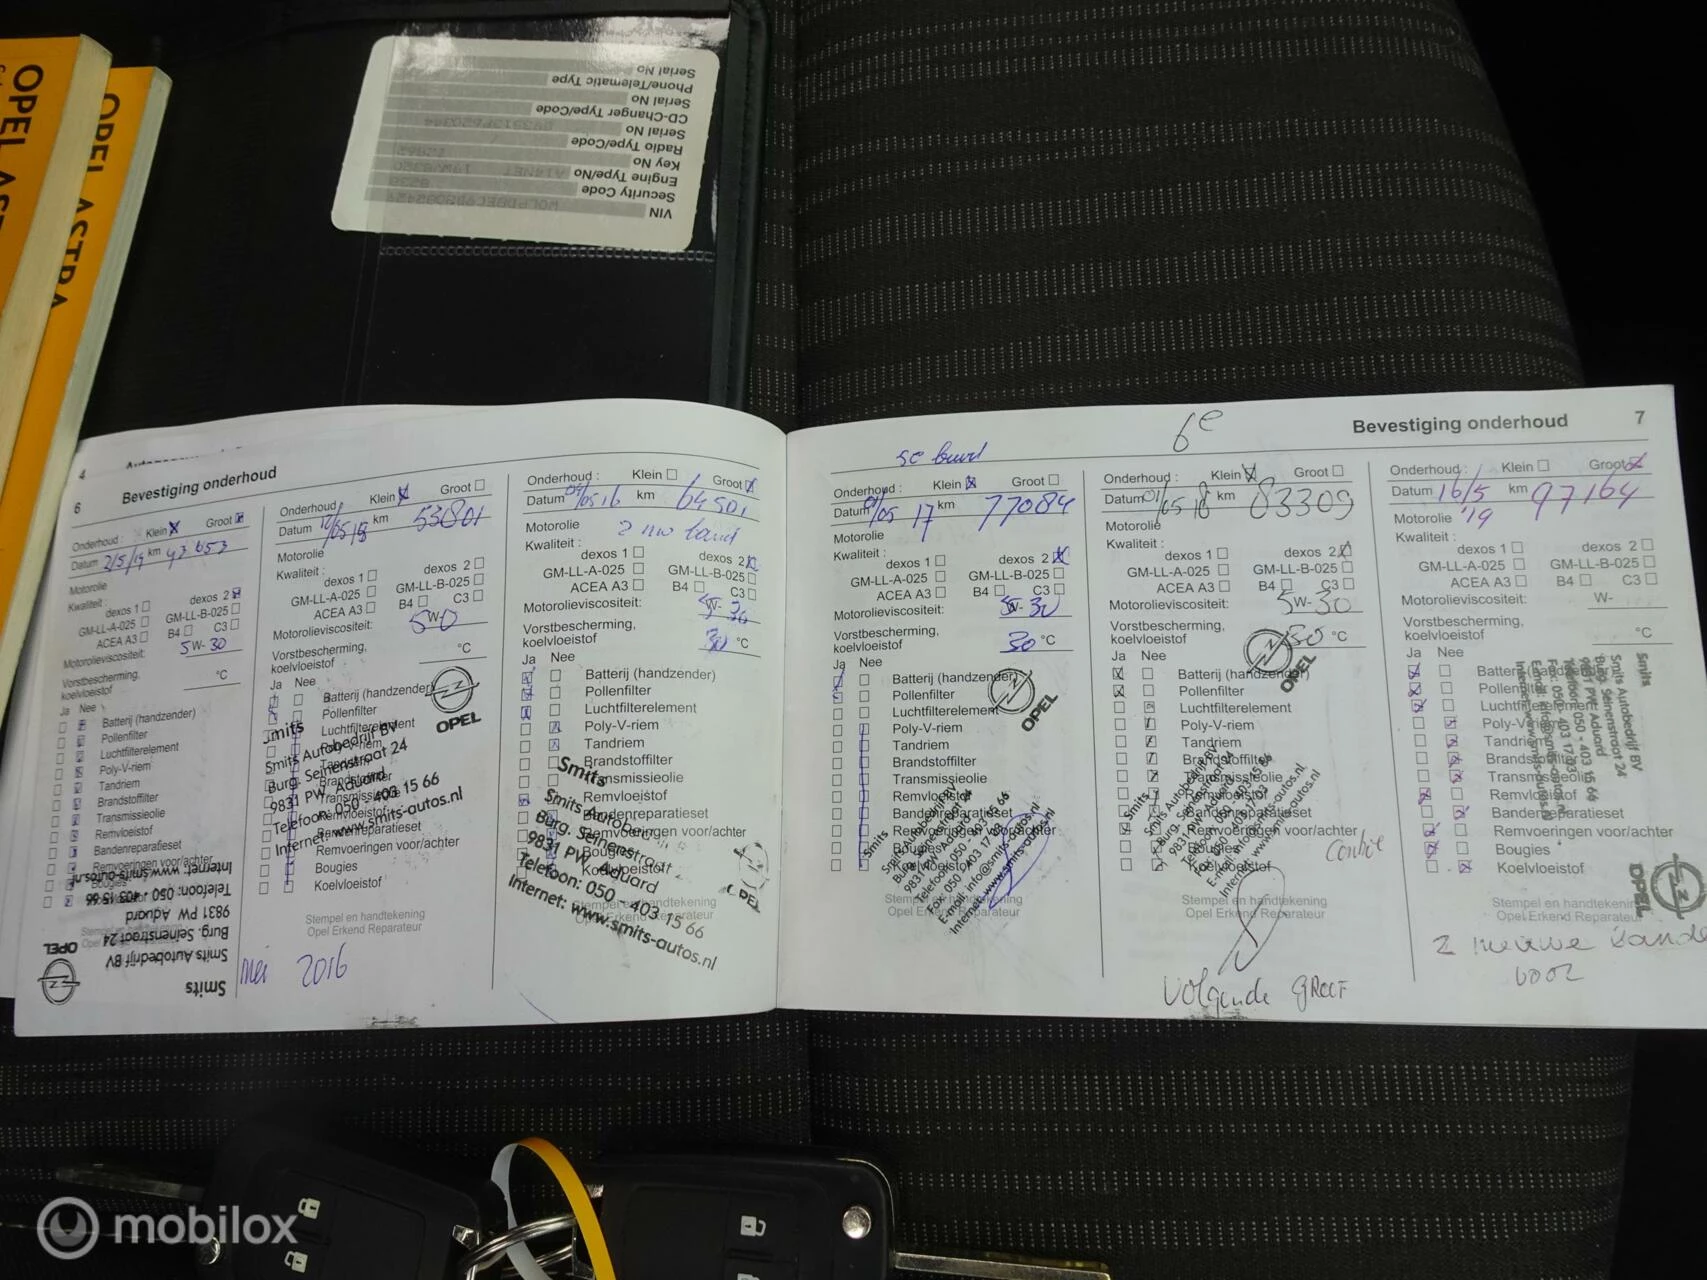 OPEL AST
OPEL ASTRA
Serial No
Phone/Telematic Type
Serial No
CD-Changer Type/Code
Serial No
Radio Type/Code
Key No
Engine Type/No
Security Code
VIN
4
6
Bevestiging onderhoud
Onderhoud : Klein Groot
Datum 2/5/19 km 43 653
Motorolie
Kwaliteit :
dexos 1 dexos 2
GM-LL-A-025 GM-LL-B-025
ACEA A3 B4 C3
Motorolieviscositeit: 5W-30
Vorstbescherming,
koelvloeistof °C
Ja Nee
Batterij (handzender)
Pollenfilter
Luchtfilterelement
Poly-V-riem
Tandriem
Brandstoffilter
Transmissieolie
Remvloeistof
Bandenreparatieset
Remvoeringen voor/achter
Bougies
Smits
Smits Autobedrijf BV
Burg. Seinenstraat 24
9831 PW Aduard
Telefoon: 050 - 403 15 66
Internet: www.smits-autos.nl
OPEL
Onderhoud : Klein Groot
Datum km 53801
Motorolie
Kwaliteit :
dexos 1 dexos 2
GM-LL-A-025 GM-LL-B-025
ACEA A3 B4 C3
Motorolieviscositeit: 5W-0
Vorstbescherming,
koelvloeistof °C
Ja Nee
Batterij (handzender)
Pollenfilter
Luchtfilterelement
OPEL
Smits
Smits Autobedrijf BV
Burg. Seinenstraat 24
9831 PW Aduard
Telefoon: 050 - 403 15 66
Internet: www.smits-autos.nl
Remvoeringen voor/achter
Bougies
Koelvloeistof
Stempel en handtekening
Opel Erkend Reparateur
mei 2016
Onderhoud : Klein Groot
Datum 04/05 16 km 64501
Motorolie
Kwaliteit :
dexos 1 dexos 2
GM-LL-A-025 GM-LL-B-025
ACEA A3 B4 C3
Motorolieviscositeit: 5W-30
Vorstbescherming,
koelvloeistof 30 °C
Ja Nee
Batterij (handzender)
Pollenfilter
Luchtfilterelement
Poly-V-riem
Tandriem
Brandstoffilter
Transmissieolie
Remvloeistof
Bandenreparatieset
Remvoeringen voor/achter
Bougies
Koelvloeistof
Smits
Smits Autobedrijf
Burg. Seinenstraat
9831 PW Aduard
Telefoon: 050 - 403 15 66
Internet: www.smits-autos.nl
Bevestiging onderhoud 7
Onderhoud : Klein Groot
Datum 05 17 km 77084
Motorolie
Kwaliteit :
dexos 1 dexos 2
GM-LL-A-025 GM-LL-B-025
ACEA A3 B4 C3
Motorolieviscositeit: 5W-30
Vorstbescherming,
koelvloeistof 30 °C
Ja Nee
Batterij (handzender)
Pollenfilter
Luchtfilterelement
Poly-V-riem
Tandriem
Brandstoffilter
Transmissieolie
Remvloeistof
Bandenreparatieset
Remvoeringen voor/achter
Bougies
Koelvloeistof
OPEL
Stempel en handtekening
Opel Erkend Reparateur
6e
Onderhoud : Klein Groot
Datum 01/05 18 km 83309
Motorolie
Kwaliteit :
dexos 1 dexos 2
GM-LL-A-025 GM-LL-B-025
ACEA A3 B4 C3
Motorolieviscositeit: 5W-30
Vorstbescherming,
koelvloeistof 30 °C
Ja Nee
Batterij (handzender)
Pollenfilter
Luchtfilterelement
Poly-V-riem
Tandriem
Brandstoffilter
Transmissieolie
Remvloeistof
Bandenreparatieset
Remvoeringen voor/achter
Bougies
Koelvloeistof
OPEL
Stempel en handtekening
Opel Erkend Reparateur
Volgende groot
Onderhoud : Klein Groot
Datum 16/5 '19 km 97164
Motorolie
Kwaliteit :
dexos 1 dexos 2
GM-LL-A-025 GM-LL-B-025
ACEA A3 B4 C3
Motorolieviscositeit: W-
Vorstbescherming,
koelvloeistof °C
Ja Nee
Batterij (handzender)
Pollenfilter
Luchtfilterelement
Poly-V-riem
Tandriem
Brandstoffilter
Transmissieolie
Remvloeistof
Bandenreparatieset
Remvoeringen voor/achter
Bougies
Koelvloeistof
Smits
Smits Autobedrijf BV
Burg. Seinenstraat 24
9831 PW Aduard
OPEL
Stempel en handtekening
Opel Erkend Reparateur
2 nieuwe banden
voor
mobilox